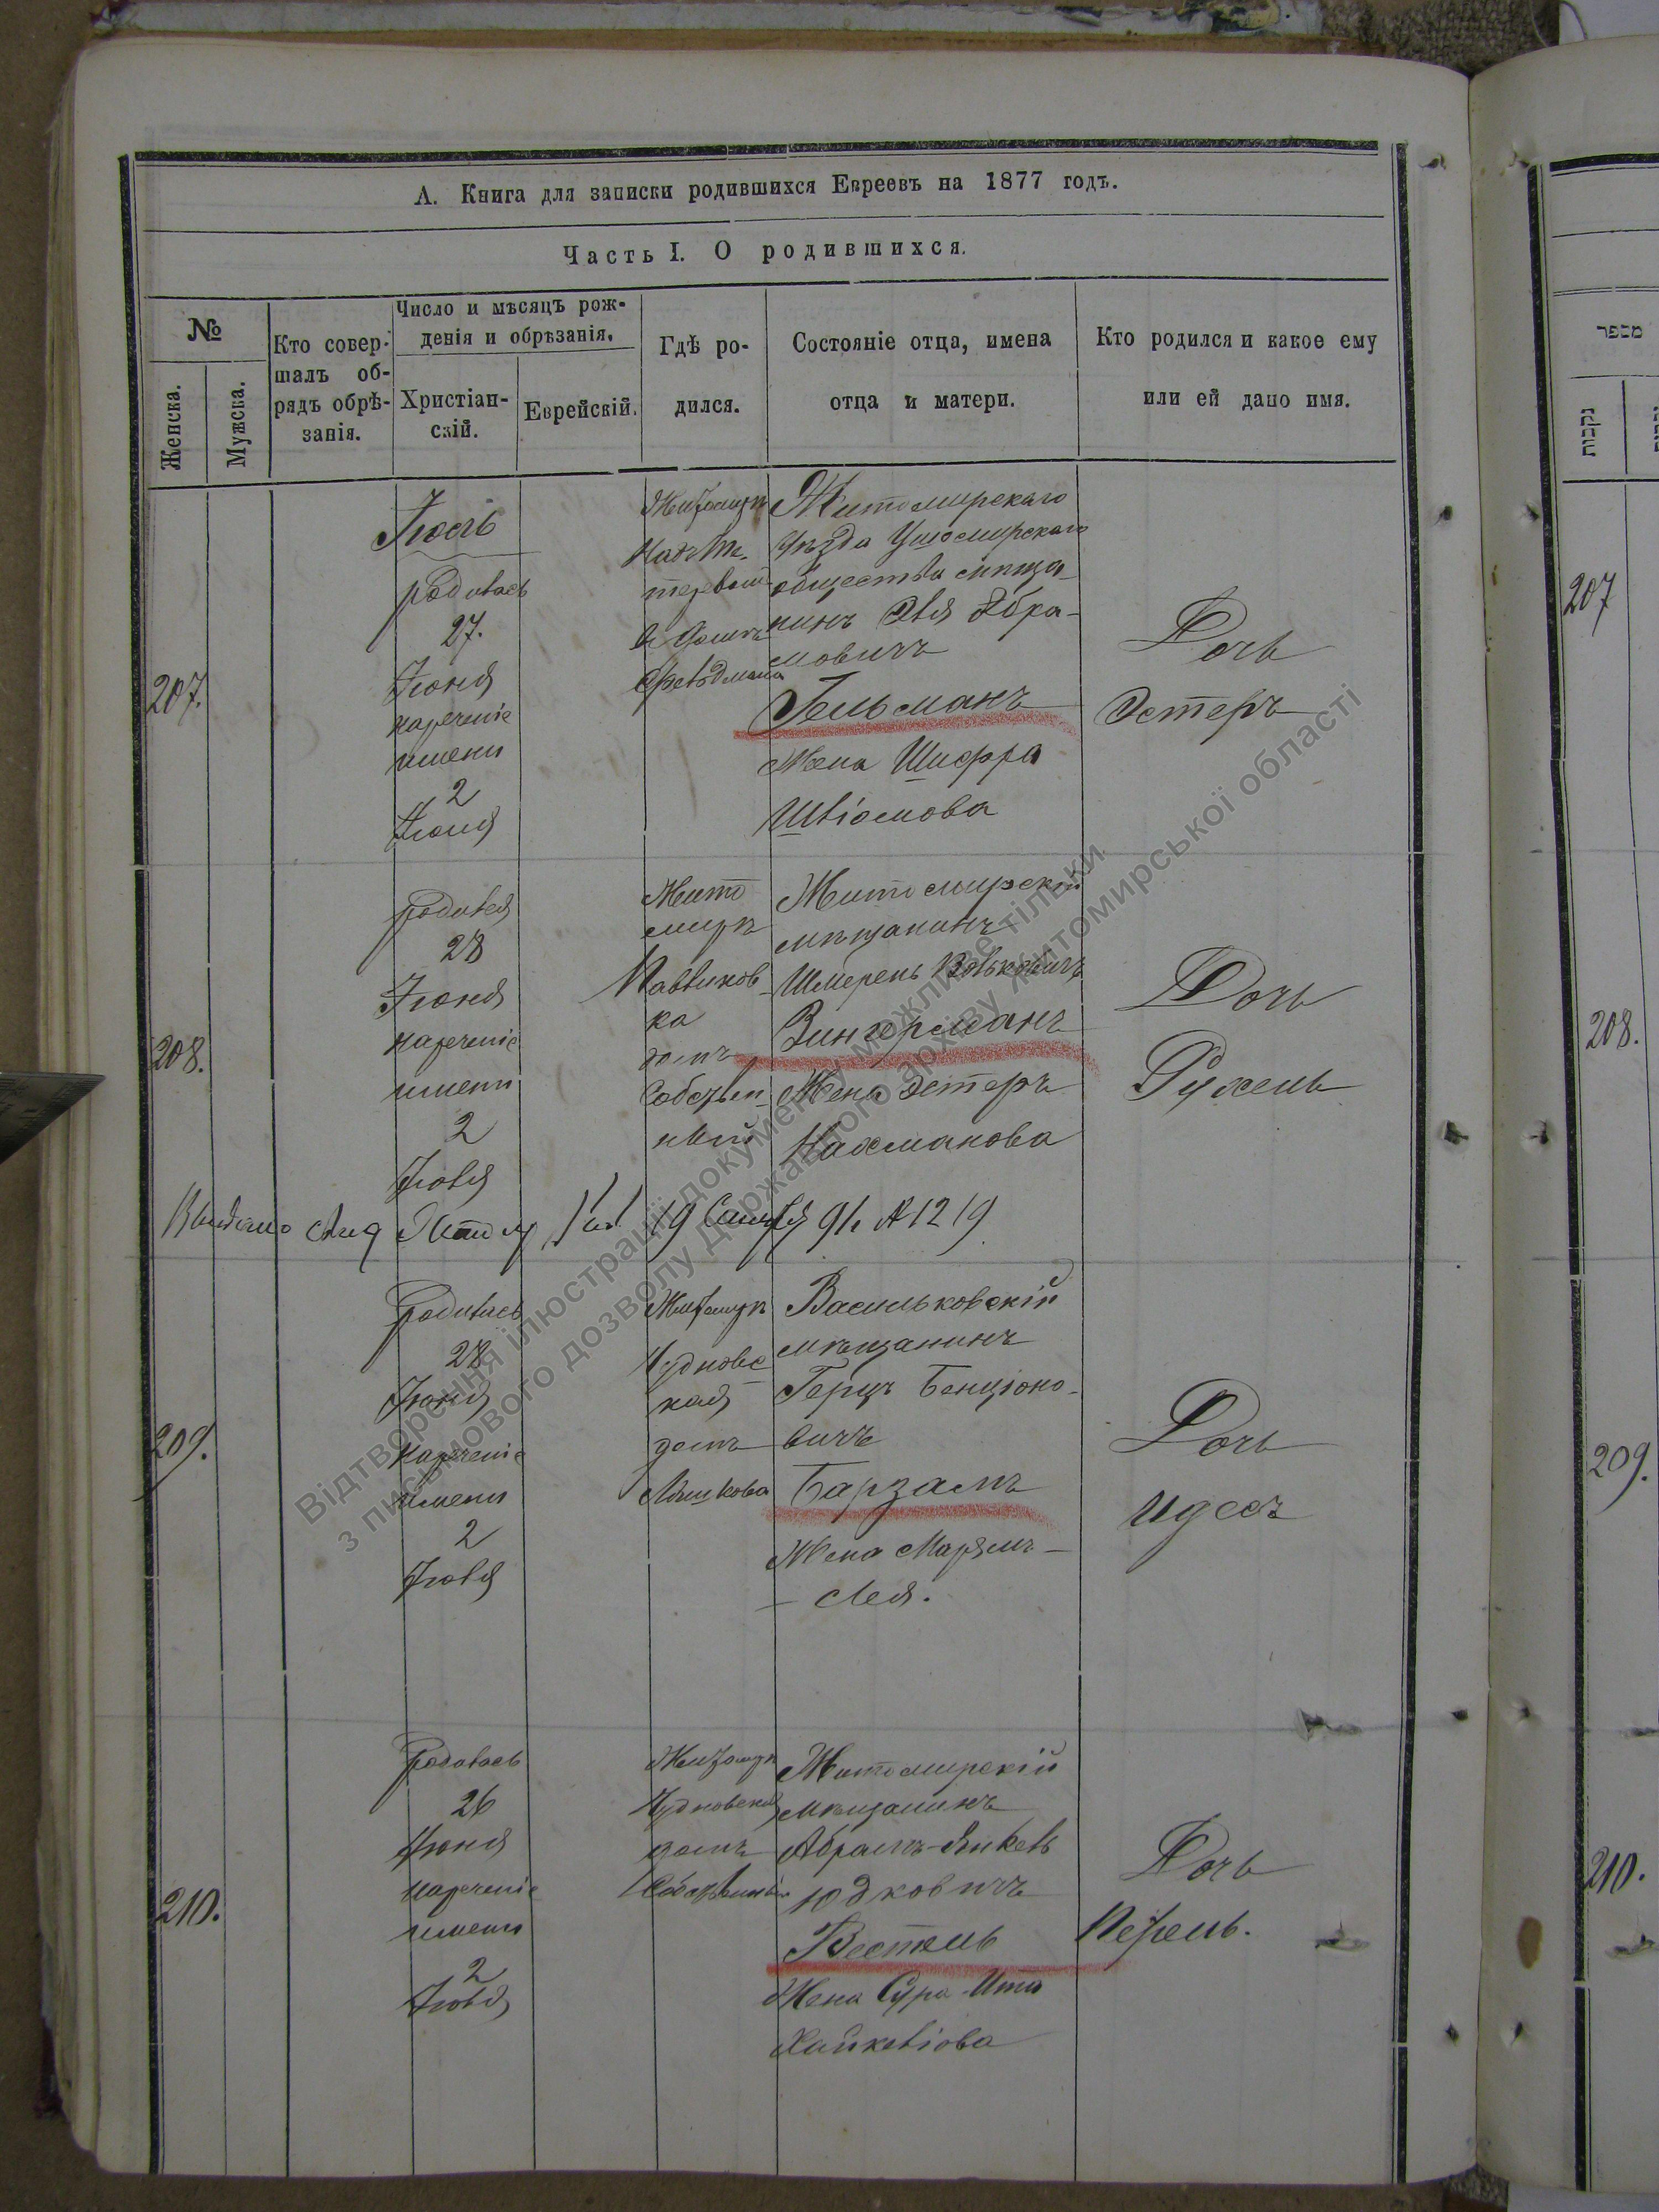 А. Книга для записки родившихся Евреевъ на 1877 годъ.
Часть I. О родившихся.
№
Женска.
Мужска.
Кто совер-
шалъ об-
рядъ обрѣ-
занія.
Число и мѣсяцъ рож-
денія и обрѣзанія.
Христіан-
скій.
Еврейскій.
Гдѣ ро-
дился.
Состояніе отца, имена
отца и матери.
Кто родился и какое ему
или ей дано имя.
207.
Іюль
родилась
27.
Іюня
нареченіе
имени
2
Іюля
Житомиръ
в домѣ
Житомирскаго
уѣзда Ушомирскаго
общества мѣща-
нинъ Эля Абра-
мовичъ
Гельманъ
Жена Шифра
Дочь
Эстеръ
208.
родилась
28
Іюня
нареченіе
имени
2
Іюля
Жито
миръ
Павликов
ка
домъ
Собствен-
ный
Житомирскій
мѣщанинъ
Шмерель Вольковичъ
Зингерманъ
Жена Эстеръ
Нахманова
Дочь
Рухель
Выдано
19
91 № 1219
209.
Родилась
28
Іюня
нареченіе
имени
2
Іюля
Житомиръ
Чудновс
кая
домъ
Васильковскій
мѣщанинъ
Герцъ Бенціоно-
вичъ
Барзамъ
Жена Марямъ-
- Лея.
Дочь
Идесъ
210.
Родилась
26
Іюня
нареченіе
имени
2
Іюля
Житомиръ
Чудновская
домъ
Собственный
Житомирскій
мѣщанинъ
Абрамъ-Янкель
Юдковичъ
Вестель
Жена Сура-Ита
Дочь
Перель.
מספר
נקבות
207
208.
209.
210.
Відтворення ілюстрації документу можливе тільки
з письмового дозволу Державного архіву Житомирської області